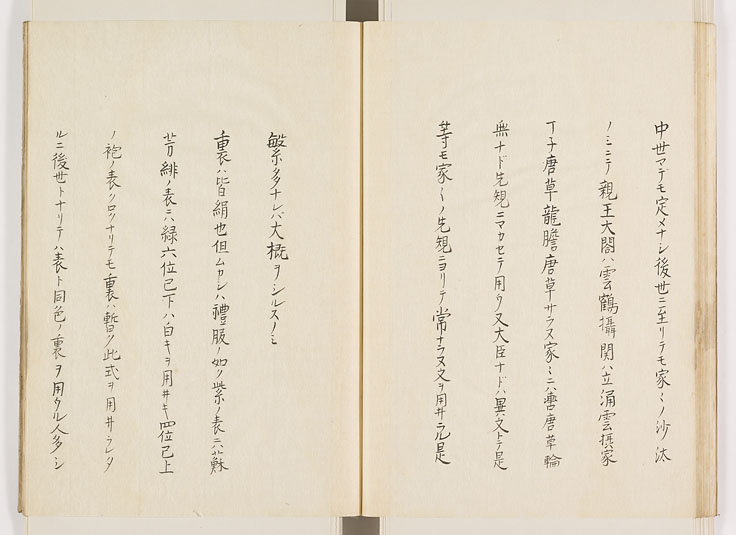 中世マデモ定メナシ後世ニ至リテモ家〻ノ沙汰
ノミニテ親王大閤ハ雲鶴攝関ハ立涌雲摂家
丁子唐草龍膽唐草サラヌ家〻ニハ唐草輪
無ナド先規ニマカセテ用ウ又大臣ナドハ異文トテ是
等モ家〻ノ先規ニヨリテ常ナラヌ文ヲ用井ラル是
繁多ナレバ大概ヲシルスノミ
裏ハ皆絹也但ムカシハ禮服ノ如ク紫ノ表ニハ蘇
芳緋ノ表ニハ緑六位已下ハ白キヲ用井キ四位已上
ノ袍ノ表クロクナリテモ裏ハ暫ク此式ヲ用井ラレタ
ルニ後世トナリテハ表ト同色ノ裏ヲ用ウル人多シ